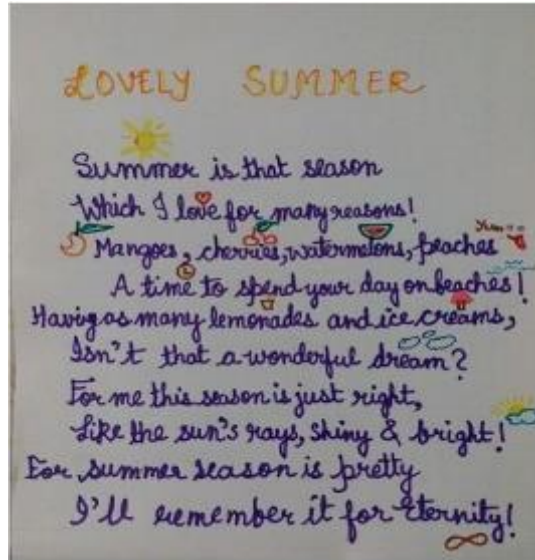 LOVELY SUMMER
Summer is that season
Which I love for many reasons!
Mangoes, cherries, watermelons, peaches
A time to spend your day on beaches!
Having as many lemonades and ice creams,
Isn't that a wonderful dream?
For me this season is just right,
Like the sun's rays, shiny & bright!
For summer season is pretty
I'll remember it for eternity!